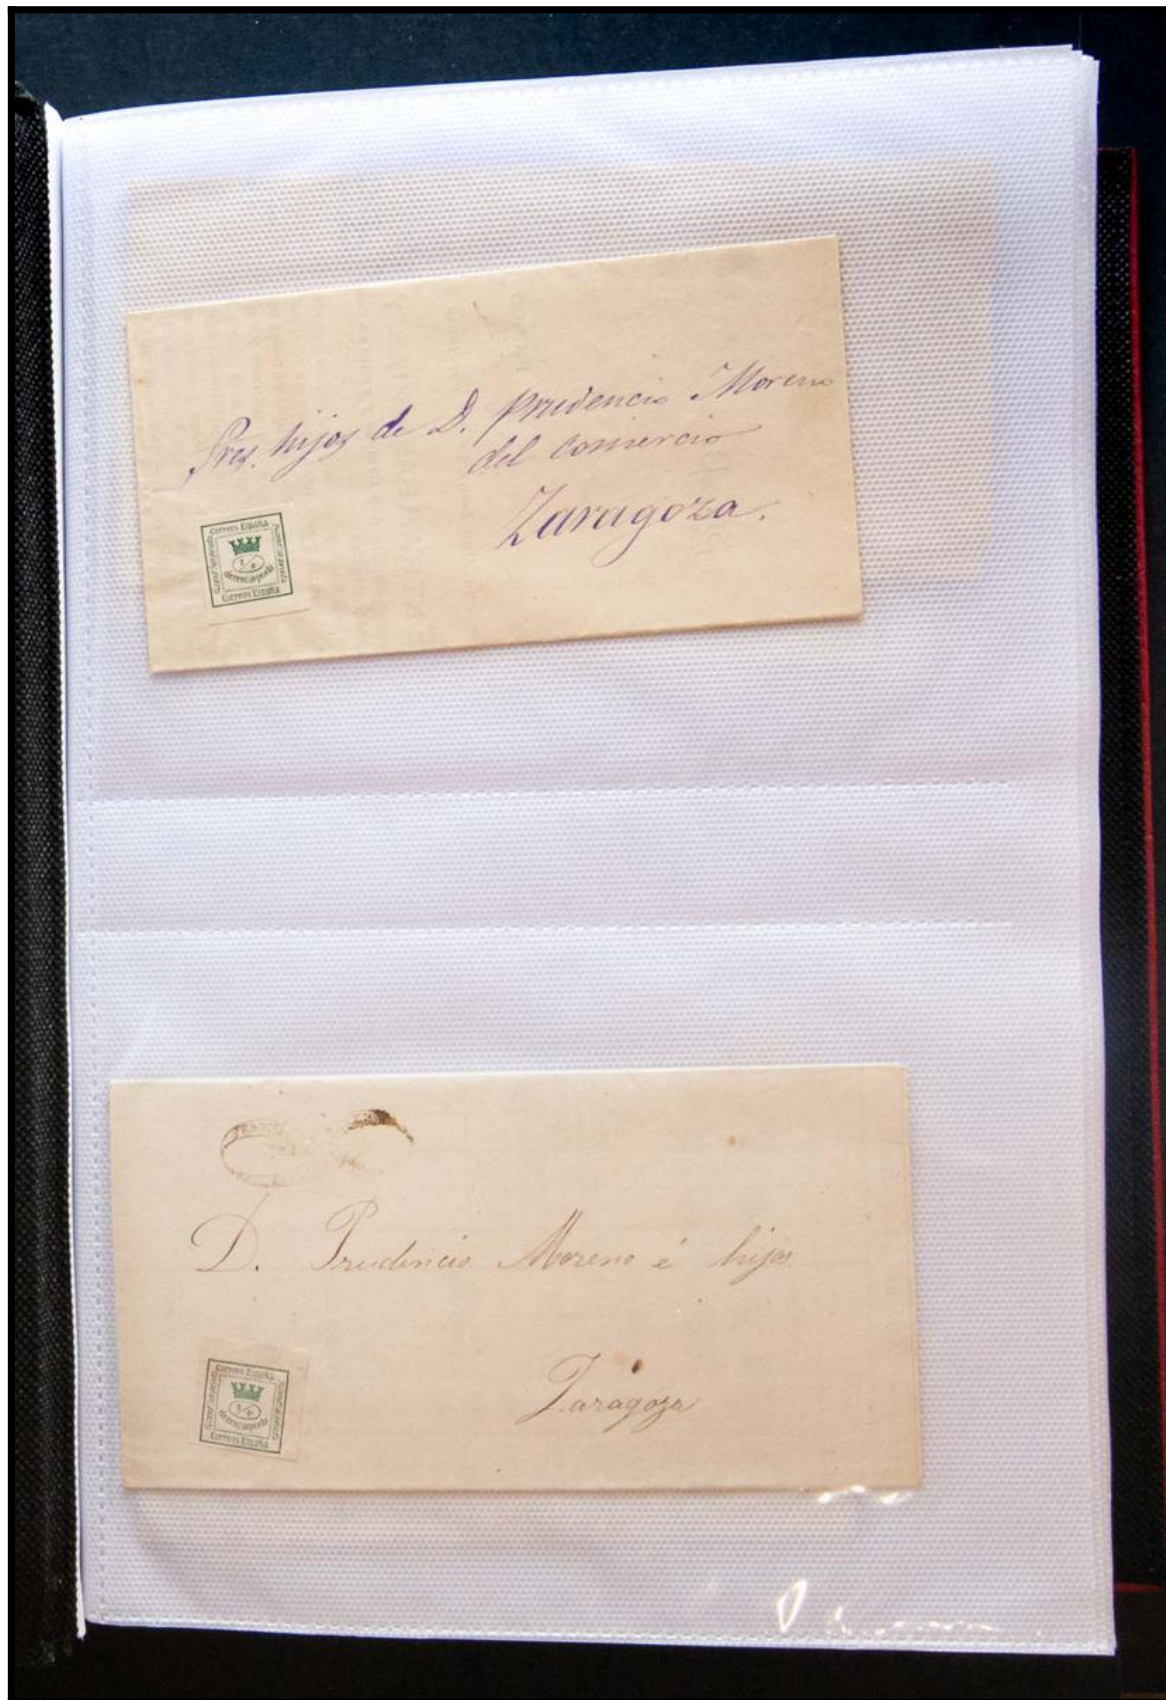 Sres. hijos de D. Prudencio Moreno
del Comercio
Zaragoza.
Correos España
1/4
decent. de peseta
Correos España
D. Prudencio Moreno é hijos
Zaragoza
Correos España
1/4
decent. de peseta
Correos España